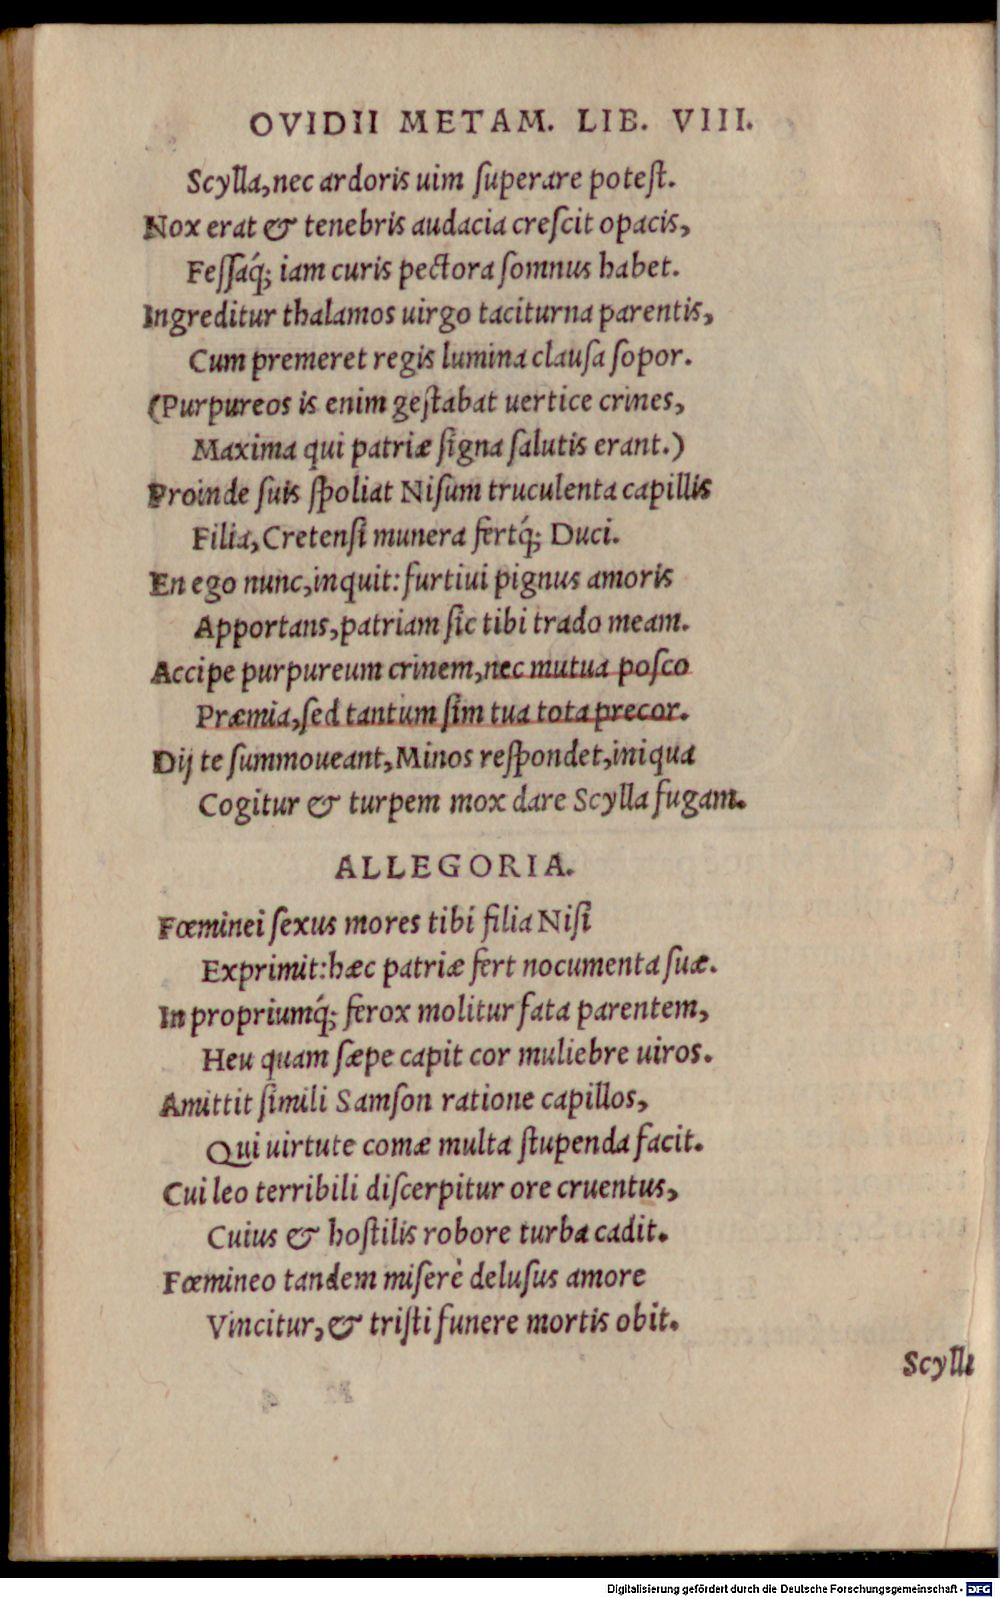 OVIDII METAM. LIB. VIII.
Scylla, nec ardoris uim ſuperare poteſt.
Nox erat & tenebris audacia creſcit opacis,
Feſſaq́; iam curis pectora ſomnus habet.
Ingreditur thalamos uirgo taciturna parentis,
Cum premeret regis lumina clauſa ſopor.
(Purpureos is enim geſtabat uertice crines,
Maxima qui patriæ ſigna ſalutis erant.)
Proinde ſuis ſpoliat Niſum truculenta capillis
Filia, Cretenſi munera fertq́; Duci.
En ego nunc, inquit: furtiui pignus amoris
Apportans, patriam ſic tibi trado meam.
Accipe purpureum crinem, nec mutua poſco
Præmia, ſed tantum ſim tua tota precor.
Dij te ſummoueant, Minos reſpondet, iniqua
Cogitur & turpem mox dare Scylla fugam.
ALLEGORIA.
Fœminei ſexus mores tibi filia Niſi
Exprimit: hæc patriæ fert nocumenta ſuæ.
In propriumq́; ferox molitur fata parentem,
Heu quam ſæpe capit cor muliebre uiros.
Amittit ſimili Samſon ratione capillos,
Qui uirtute comæ multa ſtupenda facit.
Cui leo terribili diſcerpitur ore cruentus,
Cuius & hoſtilis robore turba cadit.
Fœmineo tandem miſerè deluſus amore
Vincitur, & triſti funere mortis obit.
Scylla
Digitalisierung gefördert durch die Deutsche Forschungsgemeinschaft - DFG